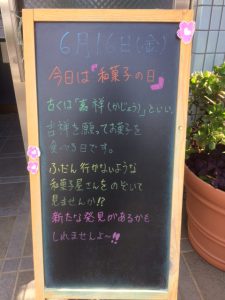 6月16日(金)
今日は『和菓子の日』
古くは「嘉祥(かじょう)」といい、
吉祥を願ってお菓子を
食べる日です。
ふだん行かないような
和菓子屋さんをのぞいて
見ませんか!?
新たな発見があるかも
しれませんよ〜!!